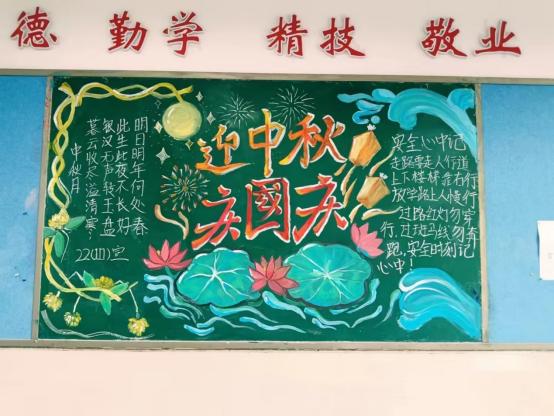 德 勤学 精技 敬业
中秋月
暮云收尽溢清寒,
银汉无声转玉盘
此生此夜不长好
明日明年何处春
22(11)宣
迎中秋
庆國庆
安全心中记
走路要走人行道
上下楼梯靠右行
放学路上人慢行
过路红灯勿穿
行,过斑马线勿奔
跑,安全时刻记
心中!